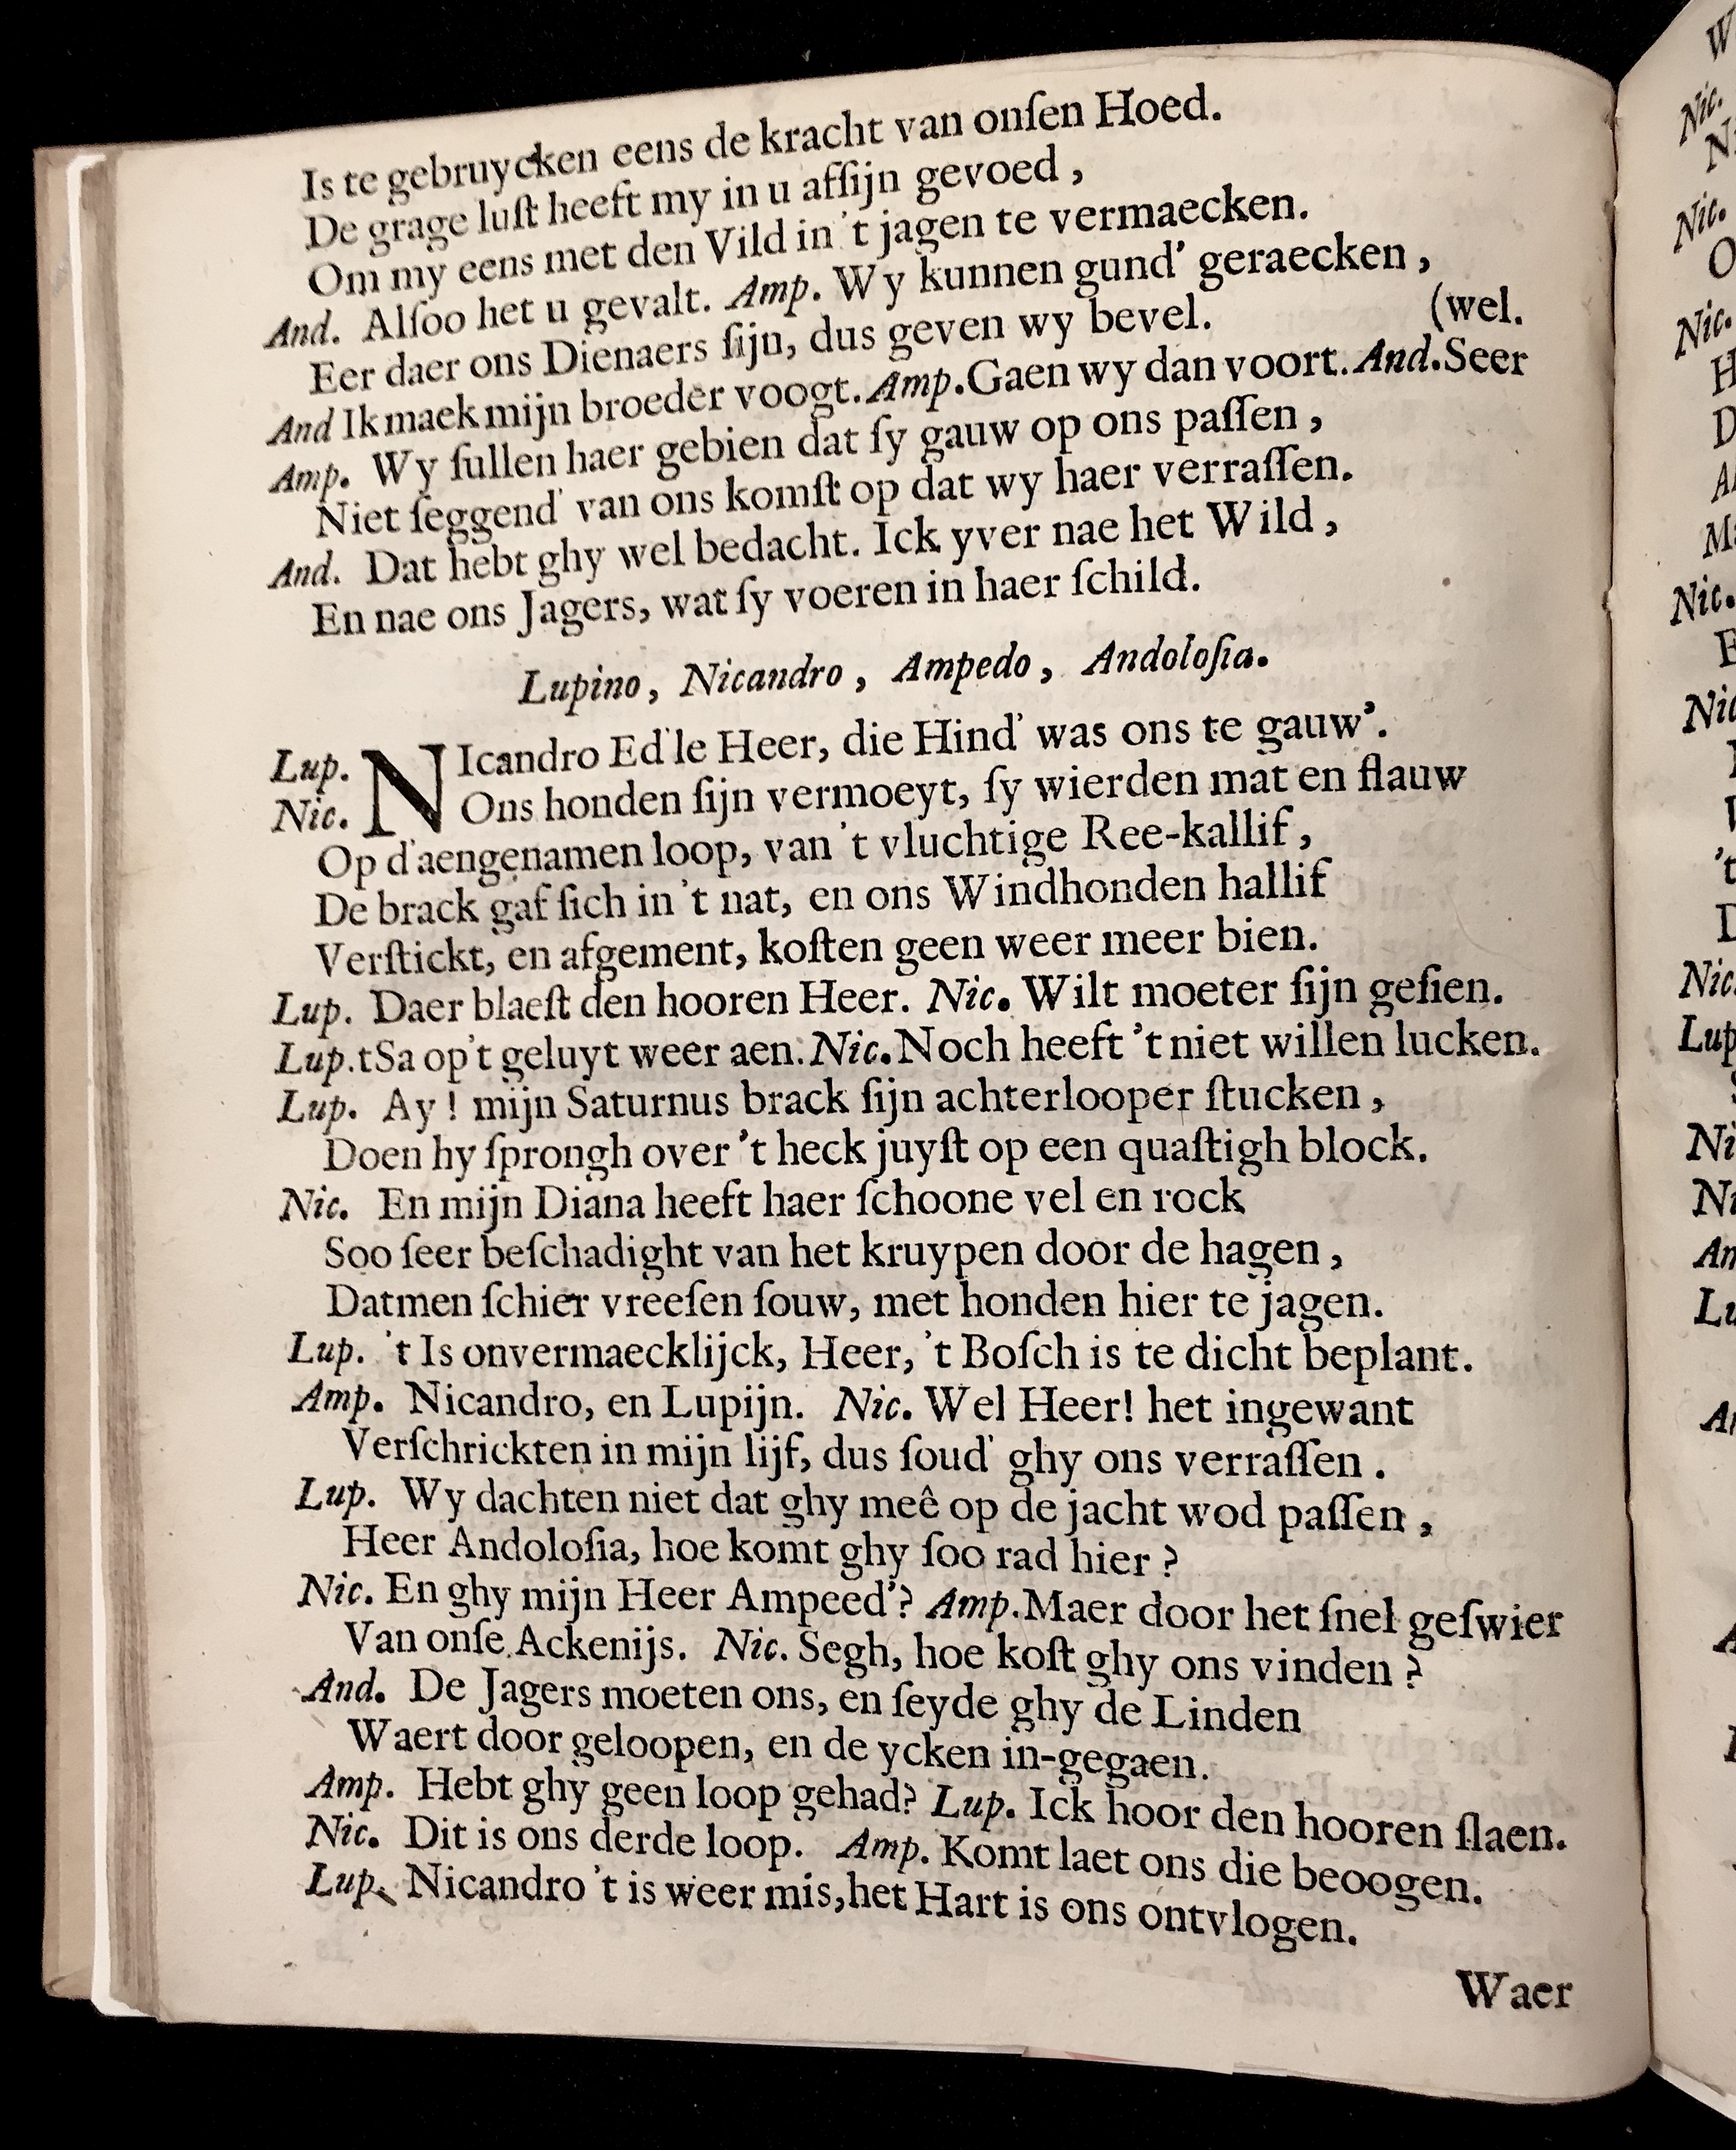 Is te gebruycken eens de kracht van onſen Hoed.
De grage luſt heeft my in u afſijn gevoed,
Om my eens met den Vild in 't jagen te vermaecken.
And. Alſoo het u gevalt. Amp. Wy kunnen gund' geraecken,
Eer daer ons Dienaers ſijn, dus geven wy bevel. (wel.
And Ik maek mijn broeder voogt. Amp. Gaen wy dan voort. And. Seer
Amp. Wy ſullen haer gebien dat ſy gauw op ons paſſen,
Niet ſeggend' van ons komſt op dat wy haer verraſſen.
And. Dat hebt ghy wel bedacht. Ick yver nae het Wild,
En nae ons Jagers, wat ſy voeren in haer ſchild.
Lupino, Nicandro, Ampedo, Andoloſia.
Lup. NIcandro Ed'le Heer, die Hind' was ons te gauw'.
Nic. Ons honden ſijn vermoeyt, ſy wierden mat en flauw
Op d'aengenamen loop, van 't vluchtige Ree-kallif,
De brack gaf ſich in 't nat, en ons Windhonden hallif
Verſtickt, en afgement, koſten geen weer meer bien.
Lup. Daer blaeſt den hooren Heer. Nic. Wilt moeter ſijn geſien.
Lup. tSa op't geluyt weer aen. Nic. Noch heeft 't niet willen lucken.
Lup. Ay! mijn Saturnus brack ſijn achterlooper ſtucken,
Doen hy ſprongh over 't heck juyſt op een quaſtigh block.
Nic. En mijn Diana heeft haer ſchoone vel en rock
Soo ſeer beſchadight van het kruypen door de hagen,
Datmen ſchier vreeſen ſouw, met honden hier te jagen.
Lup. 't Is onvermaecklijck, Heer, 't Boſch is te dicht beplant.
Amp. Nicandro, en Lupijn. Nic. Wel Heer! het ingewant
Verſchrickten in mijn lijf, dus ſoud' ghy ons verraſſen.
Lup. Wy dachten niet dat ghy meê op de jacht wod paſſen,
Heer Andoloſia, hoe komt ghy ſoo rad hier?
Nic. En ghy mijn Heer Ampeed'? Amp. Maer door het ſnel geſwier
Van onſe Ackenijs. Nic. Segh, hoe koſt ghy ons vinden?
And. De Jagers moeten ons, en ſeyde ghy de Linden
Waert door geloopen, en de ycken in-gegaen.
Amp. Hebt ghy geen loop gehad? Lup. Ick hoor den hooren ſlaen.
Nic. Dit is ons derde loop. Amp. Komt laet ons die beoogen.
Lup. Nicandro 't is weer mis, het Hart is ons ontvlogen.
Waer